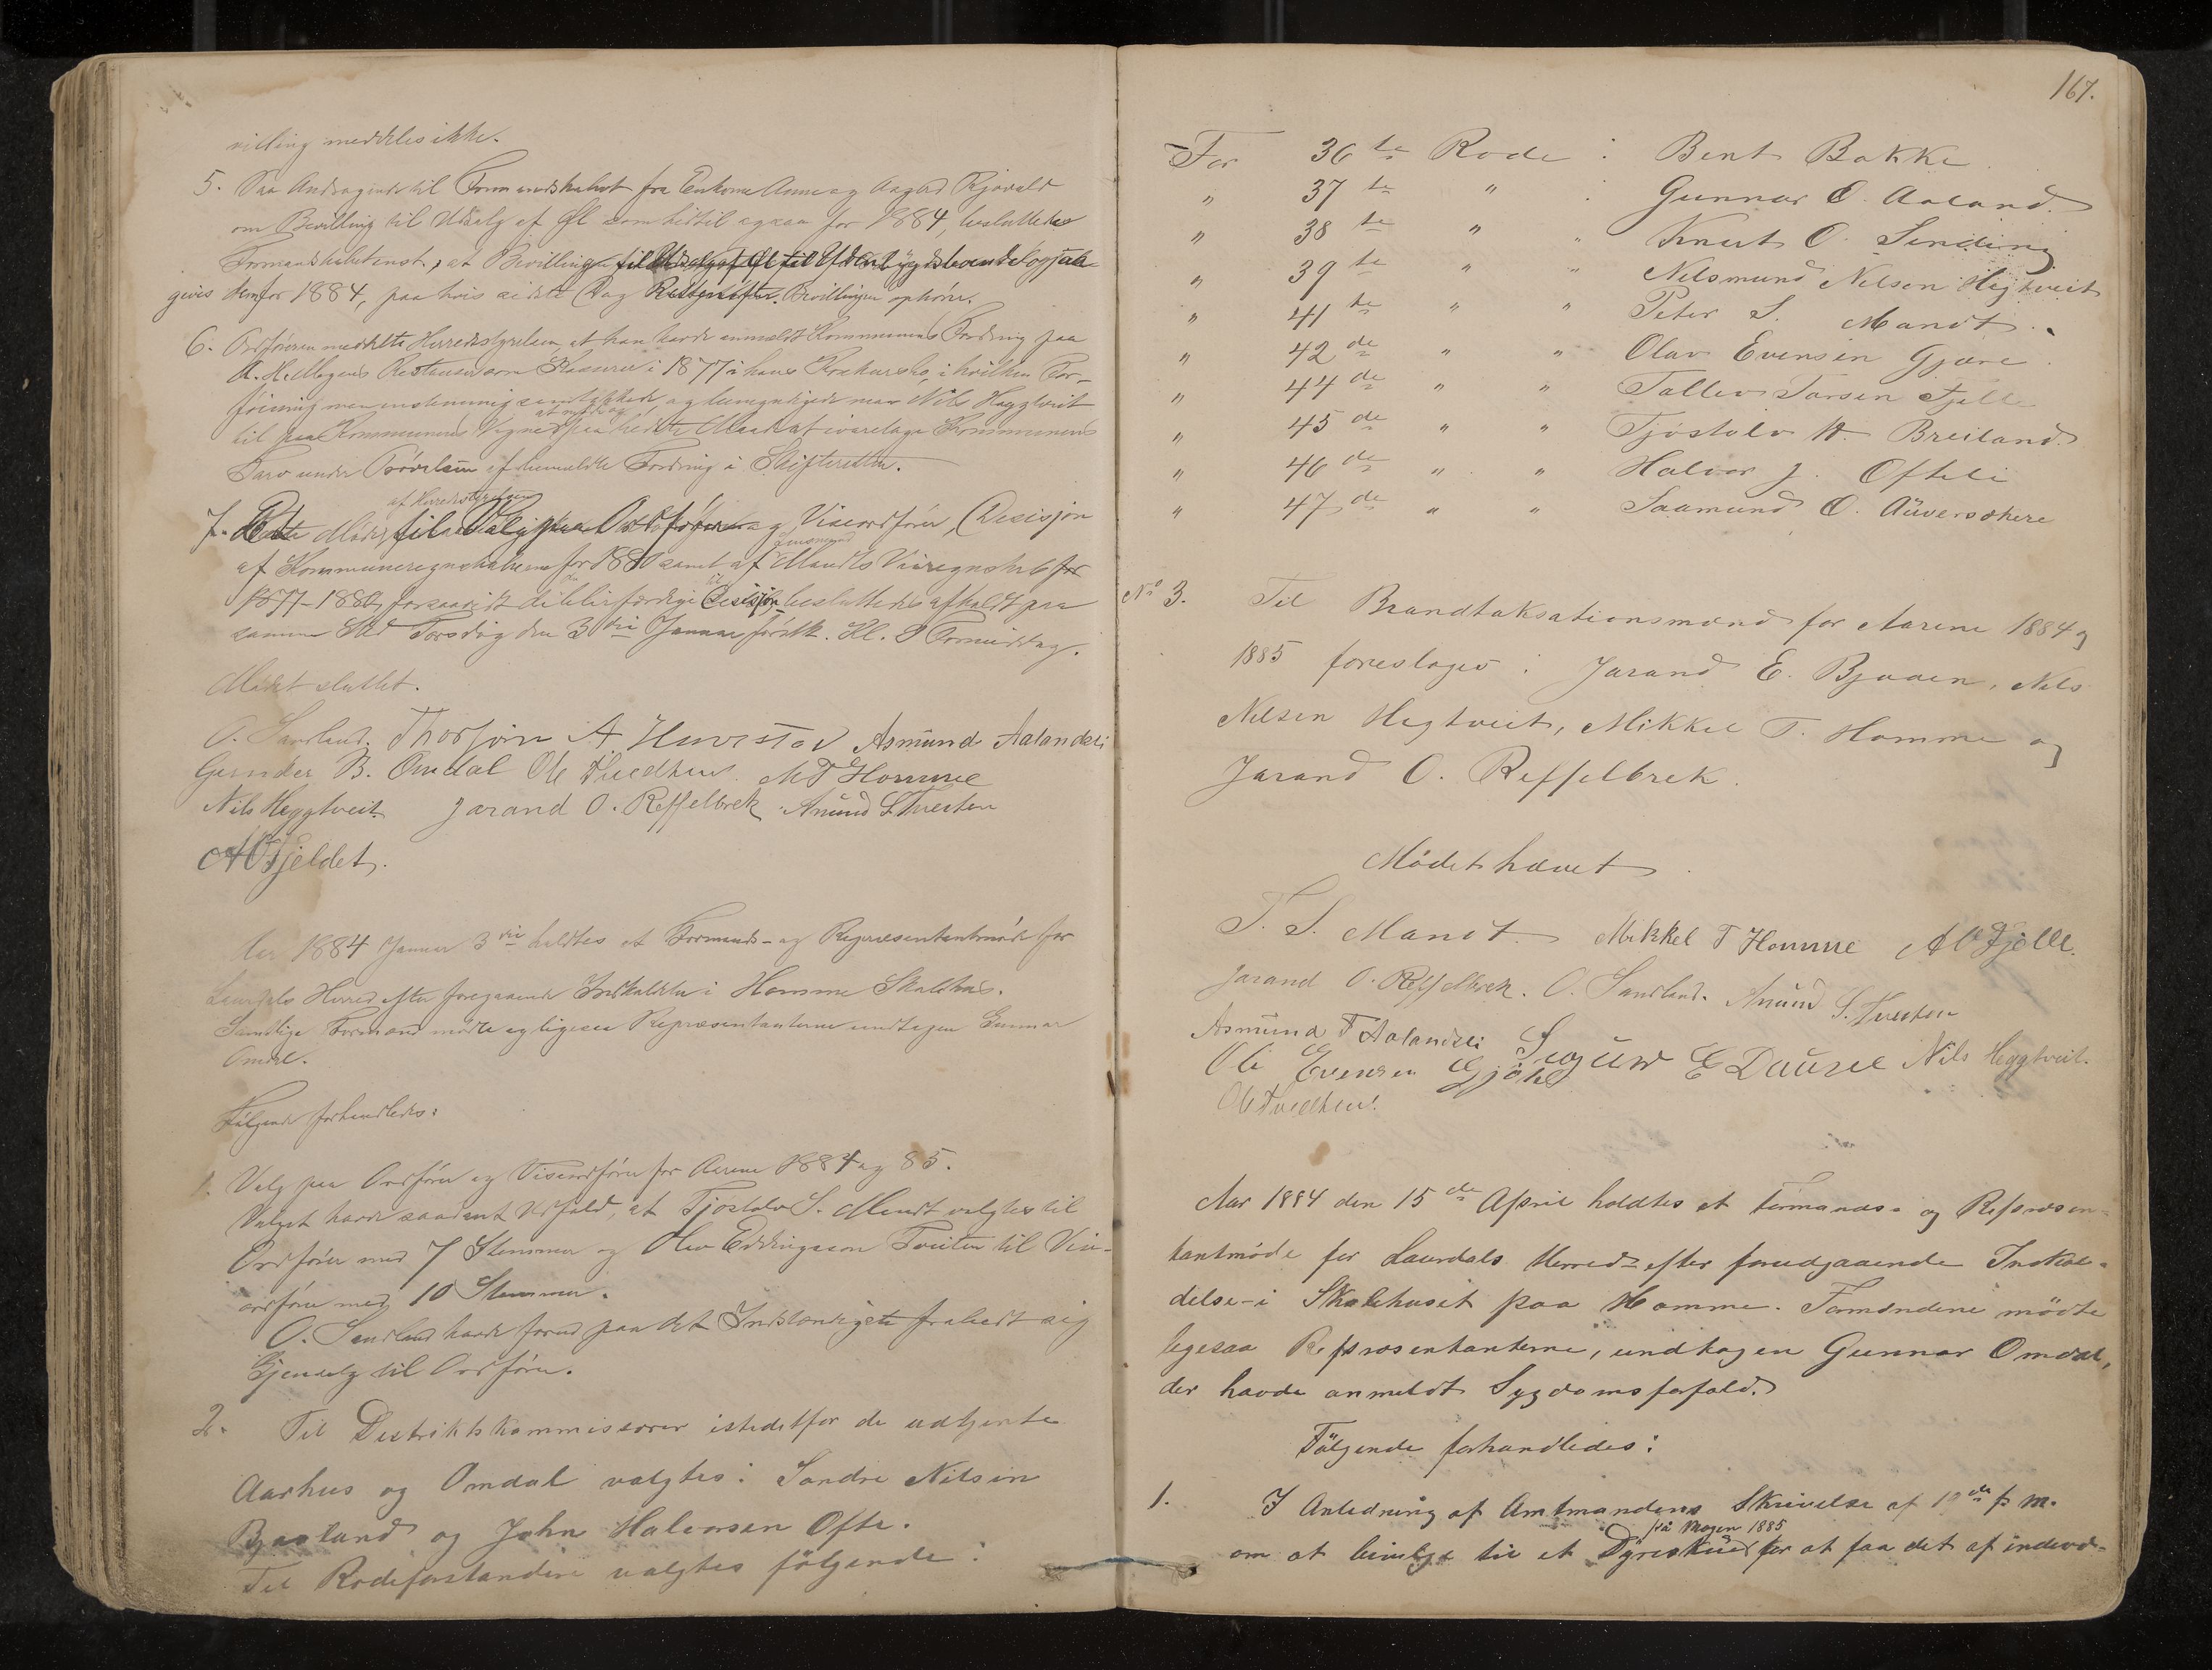 villing meddeles ikke.
5. Paa Andragende til Formandskabet fra Enkerne Anne og Aagot Rjovald
om Bevilling til Udsalg af Øl som hidtil ogsaa for 1884, besluttede
Formandskabet enst. at Bevilling til Udsalg af Øl til Udenbygdsboende Logje
gives dem for 1884, paa hvis sidste Dag Rettigheden Bevillingen ophører.
6. Ordføreren meddelte Herredsstyrelsen, at han havde anmeldt Kommunens Fordring paa
A. H. Mogens Restancer som Kasserer i 1877 i hans Konkursbo, i hvilken For-
føining man enstemmig samtykkede og bemyndigede man Nils Heggtveit
til paa Kommunens Vegne at møde og paa bedste Maade at ivaretage Kommunens
Tarv under Prøvelsen af anmeldte Fordring i Skifteretten.
7. Møde af Herredsstyrelsen til Valg paa Ordfører og Viceordfører, Decisjon
af Kommuneregnskaberne for 1880 samt af Lensmand Mandts Veiregnskab for
1877-1880, forsaavidt de blir færdige til Decisjon besluttedes afholdt paa
samme Sted Torsdag den 3die Januar førstk. Kl. 9 Formiddag.
Mødet sluttet.
O. Sandland. Thorjørn A Huvestad Asmund Aalandsli
Gunder B. Omdal Ole Tveethen. M T Homme
Nils Heggtveit. Jarand O. Reffelbrek. Anund S Tveiten
A O Fjeldet.
Aar 1884 Januar 3die holdtes et Formands- og Repræsentantmøde for
Laurdals Herred efter foregaaende Indkaldelse i Homme Skolehus.
Samtlige Formænd mødte og ligesaa Repræsentanterne undtagen Gunnar
Omdal.
Følgende forhandledes:
1. Valg paa Ordfører og Viseordfører for Aarene 1884 og 85.
Valget havde saadant Udfald, at Tjøstolv S. Mandt valgtes til
Ordfører med 7 Stemmer og Olav Eddingsson Tveiten til Vise-
ordfører med 10 Stemmer.
O. Sandland havde forud paa det Indstændigste frabedt sig
Gjenvalg til Ordfører.
2. Til Distriktskommissærer istedetfor de udtjente
Aarhus og Omdal valgtes: Sondre Nilsen
Bjaaland og John Halvorsen Ofte.
Til Rodeforstandere valgtes følgende:
167.
For 36te Rode : Bent Bakke
" 37te " : Gunnar O. Aaland.
" 38te " " Knut O. Sinding
" 39te " " Nilsmund Nilsen Hegtveit
" 41te " " Peter S. Mandt.
" 42de " " Olav Evensen Gjøre.
" 44de " " Tallev Tarsen Fjelle
" 45de " " Tjøstolv H. Breiland.
" 46de " " Halvor J. Ofteli
" 47de " " Saamund O. Auversakere
No 3. Til Brandtaksationsmænd for Aarene 1884 og
1885 foreslages : Jarand E. Bjaaen, Nils
Nilsen Hegtveit, Mikkel T. Homme og
Jarand O. Reffelbrek.
Mødet hævet.
T. S. Mandt. Mikkel T Homme A O Fjelle.
Jarand O. Reffelbrek. O. Sandland. Anund S. Tveiten
Asmund T Aalandsli Sigurd E Dausæ Nils Heggtveit.
Ole Evensen Gjøre
Ole Tveethen.
Aar 1884 den 15de April holdtes et Formands- og Repræsen-
tantmøde for Laurdals Herred efter forudgaaende Indkal-
delse i Skolehuset paa Homme. Formændene mødte
ligesaa Repræsentanterne, undtagen Gunnar Omdal,
der havde anmeldt Sygdomsforfald.
Følgende forhandledes:
1. I Anledning af Amtmandens Skrivelse af 10de f. M.
om at bevilge til et Dyreskue paa Mogen 1885 for at faa det af indevæ-